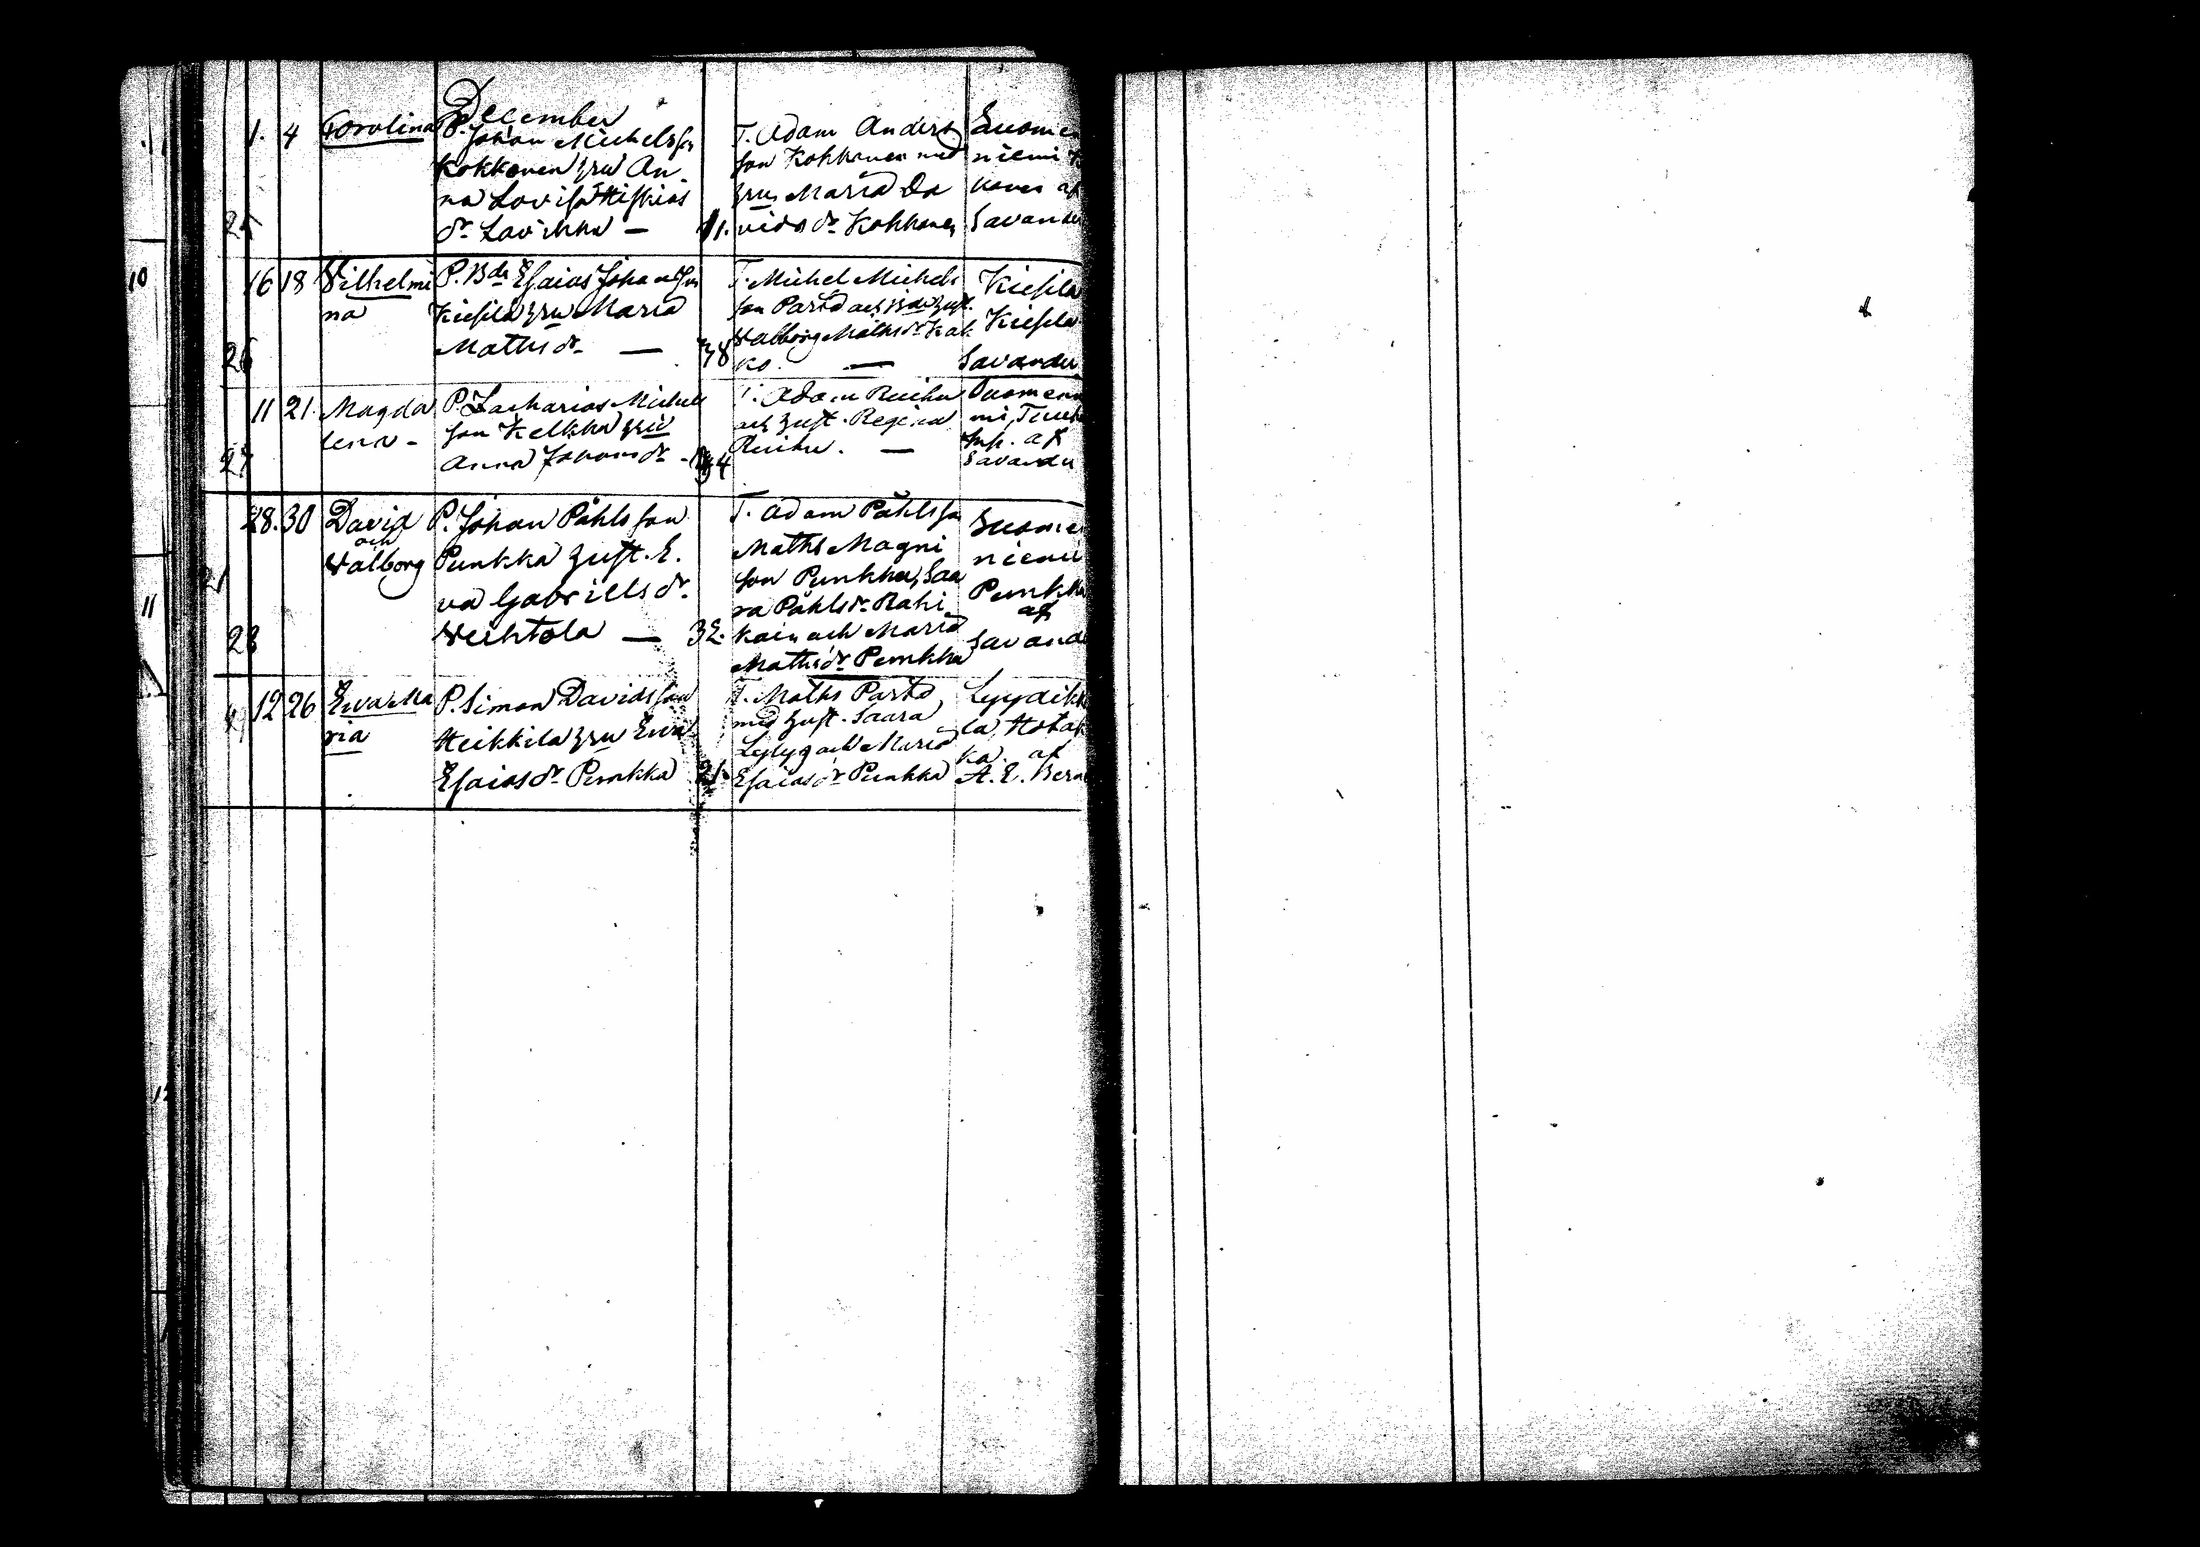 December
1. 4 Carolina P. Johan Michelsson
Kokkonen hru An-
na Lovisa Hiskias
dr Lavikka — 
25
T. Adam Anders
son Kokkonen med
hru Maria Da
vids dr Kokkonen
Suomen
niemi
Savander
16 18 Vilhelmi
na
P. Bde Esaias Johansson
Kiesilä hru Maria
Maths dr —
26
38
T. Michel Michels
son Partō och Bde hust.
Valborg Maths dr Kak
ko. —
Kiesilä
Kiesilä
Savander
11 21. Magda
lena -
P. Zacharias Michels
son Kelkka hru
Anna Johans dr -
27
34
T. Adam Reihu
och hust. Regina
Reihu. —
Suomen
af
Savander
28. 30 David
och
Valborg
P. Johan Påhlsson
Punkka hust. E-
va Gabriells dr
Vechtola —
28
32.
T. Adam Påhlsson
Maths Magni
son Punkka, Saa
ra Påhls dr Rahi
kain och Maria
Maths dr Punkka
Suomen
niemi
Punkka
af
Savand
12 26 Eva Ma
ria
P. Simon Davidsson
Heikkilä hru Eva
Esaias dr Punkka
21.
T. Maths Partō
med hust. Saara
Lyly och Maria
Esaias dr Punkka
Lyydikk
la, Hotak
ka. af
A. E. Bern
10
11